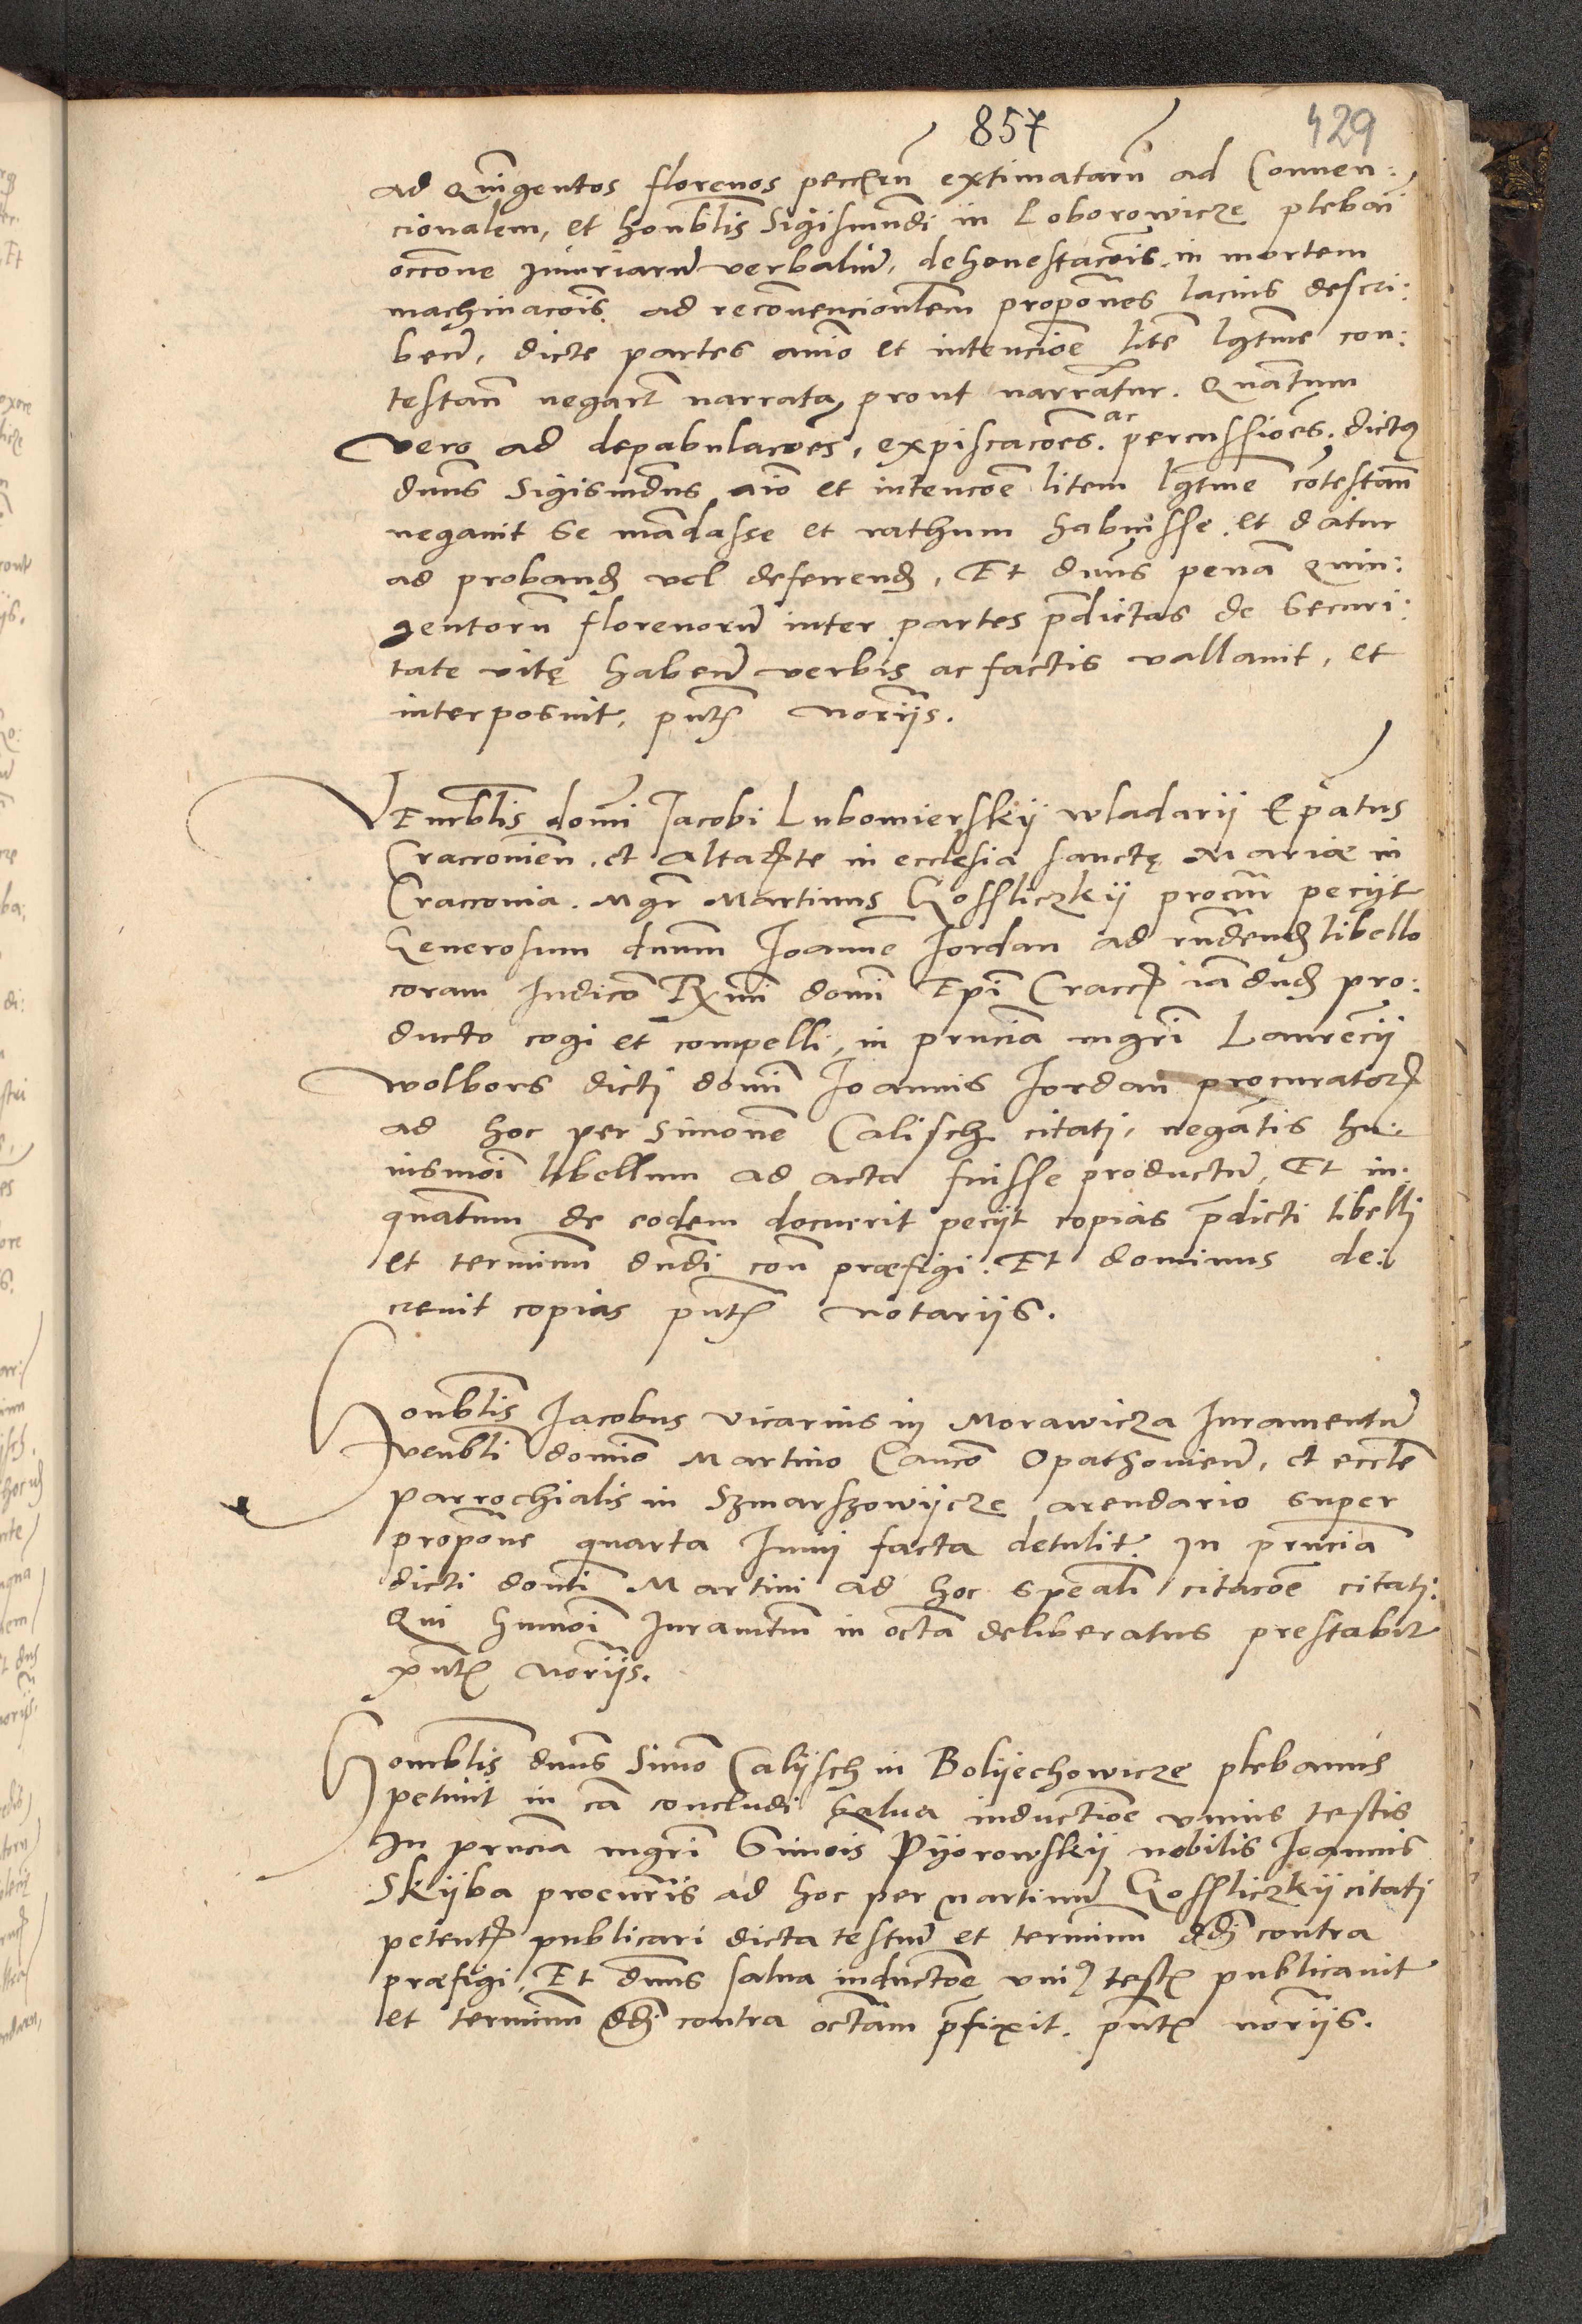 857 429
ad Quingentos florenos peccũrũ extimatarũ ad Conuen:
cionalem, et honrblis Sigismũdi in Loborowicze plebañi
occone iniuriarũ verbaliũ, dehonestacõis in mortem
machinacõis. ad recõuencionlem propones lacius descri:
ben̄, dicte partes animo et intencioẽ litẽ lgtme con:
testan̄ negart̃ narrata, prout narrãtur. Quãtum
vero ad depabulacões, expiscacões. ac percussiões. dictus
dnus Sigismdus aĩo et intencõe litem lgtme cõtestan̄
negauit se mãdasse et rathum habuisse. et datur
ad proband̃ vel deferend̃, Et dnus penã Quin:
gentorũ florenorũ inter partes p̃dictas de Securi:
tate vitę haben̄ verbis ac factis vallauit, et
interposuit, pñtƺ noriis.
VEnrblis domĩ Jacobi Lubomierskij wladarij Epãtus
Cracouien̄. et Altariste in ecclesia sanctę Mariæ in
Cracouia. Mgr Martinus Gosslicʒkij procur̃ peciit
Generosum dnum Joannẽ Jordan ad rñdend̃ libello
coram Judicio R̃mi domĩ Epĩ Cracoƺ iã dud̃ pro:
ducto cogi et compelli, in pr̃ncia mgrĩ Laurecij
wolbors dicti domĩ Joannis Jordan procuratoris
ad hoc per Simonẽ Calisch citati, negãtis hu:
iusmõi libellum ad acta fuisse productũ, Et in:
quãtum de eodem docuerit peciit copias p̃dicti libelli
et terminũ dñdi con̄ præfigi. Et dominus de:
creuit copias pñtƺ notariis.
Honrblis Jacobus vicarius in Morawicza Juramentũ
venrbli domĩo Martino Canco Opathouien̄, et ecclẽ
parrochialis in Szmarszowijcze arendario super
propõne quarta Junij facta detulit. In pr̃ncia
dicti domĩ Martini ad hoc speali citacõe citati.
Qui humõi Juramtũ in octã deliberatus prestabit
pñtƺ noriis.
Honrblis dnus Simõ Calijsch in Bolijechowicze plebanus
petiuit in cã concludi Salua inductiõe vnius testis
In pr̃ncia mgrĩ Simõis Pijorowskij nobilis Joannis
Skijba procuris ad hoc per Martinũ Gosslicʒkij citati
petentis publicari dicta testiũ et terminũ dd̃i contra
præfigi, Et dnus salua inductõe vniꝰ testis publicauit
et terminũ dd̃i contra octãm p̃fixit. pñtƺ noriis.